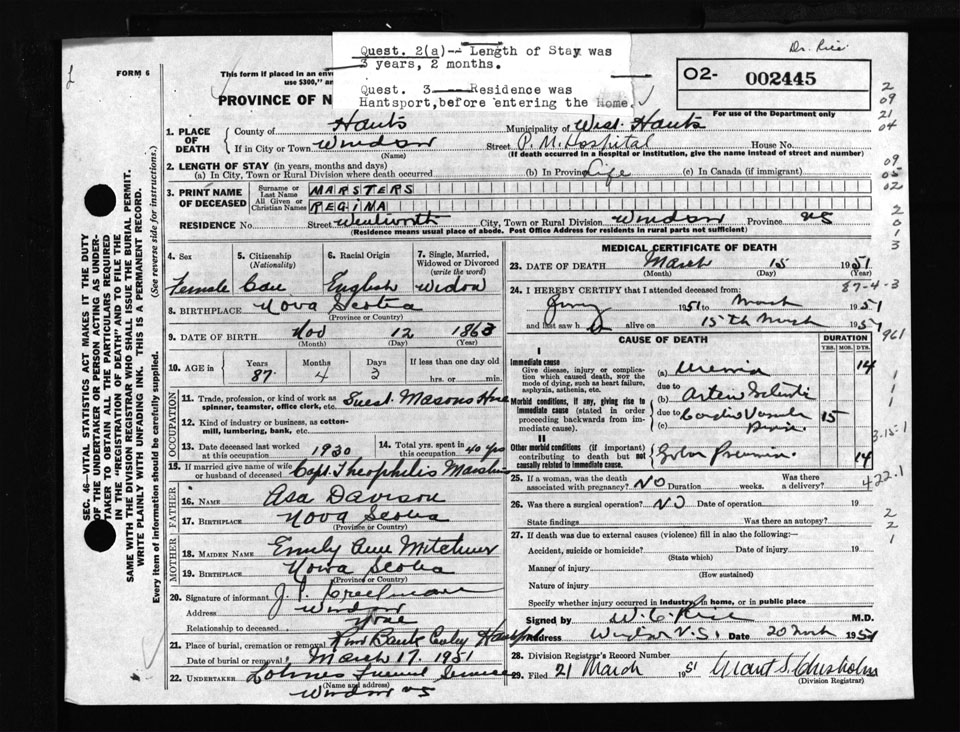 Dr. Rice
Quest. 2(a)-- Length of Stay was
3 years, 2 months.
Quest. 3 ---Residence was
Hantsport,before entering the Home.
FORM 6
This form if placed in an env
use $300," an
PROVINCE OF N
02- 002445
For use of the Department only
1. PLACE OF DEATH { County of Hants Municipality of West Hants
If in City or Town Windsor Street P. M. Hospital House No.
(Name) (If death occurred in a hospital or institution, give the name instead of street and number)
2. LENGTH OF STAY (in years, months and days)
(a) In City, Town or Rural Division where death occurred (b) In Province Life (c) In Canada (if immigrant)
3. PRINT NAME OF DECEASED { Surname or Last Name MARSTERS
All Given or Christian Names REGINA
RESIDENCE No. Street Wentworth City, Town or Rural Division Windsor Province NS
(Residence means usual place of abode. Post Office Address for residents in rural parts not sufficient)
4. Sex 5. Citizenship (Nationality) 6. Racial Origin 7. Single, Married, Widowed or Divorced (write the word)
Female Can English Widow
8. BIRTHPLACE Nova Scotia
(Province or Country)
9. DATE OF BIRTH Nov 12 1863
(Month) (Day) (Year)
10. AGE in { Years Months Days If less than one day old
87 4 3 hrs. or min.
OCCUPATION
11. Trade, profession, or kind of work as spinner, teamster, office clerk, etc. Guest Masons Home
12. Kind of industry or business, as cotton-mill, lumbering, bank, etc.
13. Date deceased last worked at this occupation 1930 14. Total yrs. spent in this occupation 40 yrs
15. If married give name of wife or husband of deceased Capt. Theophilis Marsters
FATHER
16. NAME Asa Davison
17. BIRTHPLACE Nova Scotia
(Province or Country)
MOTHER
18. MAIDEN NAME Emily Ann Mitchner
19. BIRTHPLACE Nova Scotia
(Province or Country)
20. Signature of informant J. Creelman
Address Windsor
Relationship to deceased None
21. Place of burial, cremation or removal Hantsport
Date of burial or removal March 17. 1951
22. UNDERTAKER Funeral Service
(Name and address)
Windsor NS
MEDICAL CERTIFICATE OF DEATH
23. DATE OF DEATH March 15 1951
(Month) (Day) (Year)
87-4-3
24. I HEREBY CERTIFY that I attended deceased from:
1951 to March 1951
and last saw h alive on 15th March 1951
CAUSE OF DEATH DURATION
YRS. MOS. DYS.
I
Immediate cause
Give disease, injury or complication which caused death, not the mode of dying, such as heart failure, asphyxia, asthenia, etc.
(a) Uremia 14
due to
Morbid conditions, if any, giving rise to immediate cause (stated in order proceeding backwards from immediate cause).
(b)
due to
(c) 15
II
Other morbid conditions (if important) contributing to death but not causally related to immediate cause.
14
25. If a woman, was the death associated with pregnancy? NO Duration weeks. Was there a delivery?
26. Was there a surgical operation? NO Date of operation 19
State findings Was there an autopsy?
27. If death was due to external causes (violence) fill in also the following:—
Accident, suicide or homicide? Date of injury 19
(State which)
Manner of injury
(How sustained)
Nature of injury
Specify whether injury occurred in industry, in home, or in public place
Signed by W. C. Rice M.D.
Address Windsor N.S. Date 20 March 1951
28. Division Registrar's Record Number
29. Filed 21 March 1951 Grant S. Chisholm
(Division Registrar)
SEC. 46—VITAL STATISTICS ACT MAKES IT THE DUTY
OF THE UNDERTAKER OR PERSON ACTING AS UNDER-
TAKER TO OBTAIN ALL THE PARTICULARS REQUIRED
IN THE "REGISTRATION OF DEATH" AND TO FILE THE
SAME WITH THE DIVISION REGISTRAR WHO SHALL ISSUE THE BURIAL PERMIT.
WRITE PLAINLY WITH UNFADING INK. THIS IS A PERMANENT RECORD.
Every item of information should be carefully supplied. (See reverse side for instructions.)
2
09
21
04
09
05
02
2
0
1
3
961
1
1
1
3.15.1
422.1
2
2
1